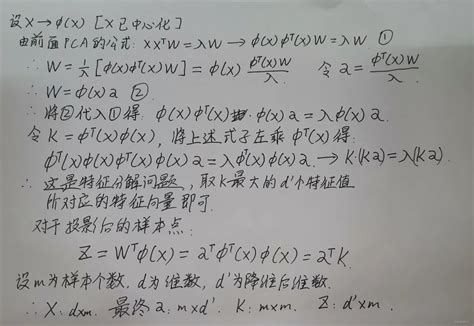 设X→φ(X) [X已中心化]
由前面PCA的公式: XXᵀW=λW → φ(X)φᵀ(X)W=λW ①
∴ W=1/λ[φ(X)φᵀ(X)W]=φ(X) φᵀ(X)W/λ 令a=φᵀ(X)W/λ
∴ W=φ(X)a ②.
∴ 将②代入①得: φ(X)φᵀ(X)·φ(X)a=λφ(X)a.
令K=φᵀ(X)φ(X), 将上述式子左乘φᵀ(X)得:
φᵀ(X)φ(X)φᵀ(X)φ(X)a=λφᵀ(X)φ(X)a → K·(Ka)=λ(Ka).
∴ 这是特征分解问题, 取K最大的d'个特征值
所对应的特征向量即可.
对于投影后的样本点:
Z=Wᵀφ(X)=aᵀφᵀ(X)φ(X)=aᵀK.
设m为样本个数, d为维数, d'为降维后维数.
∴ X: d×m. 最终a: m×d'. K: m×m. Z: d'×m.